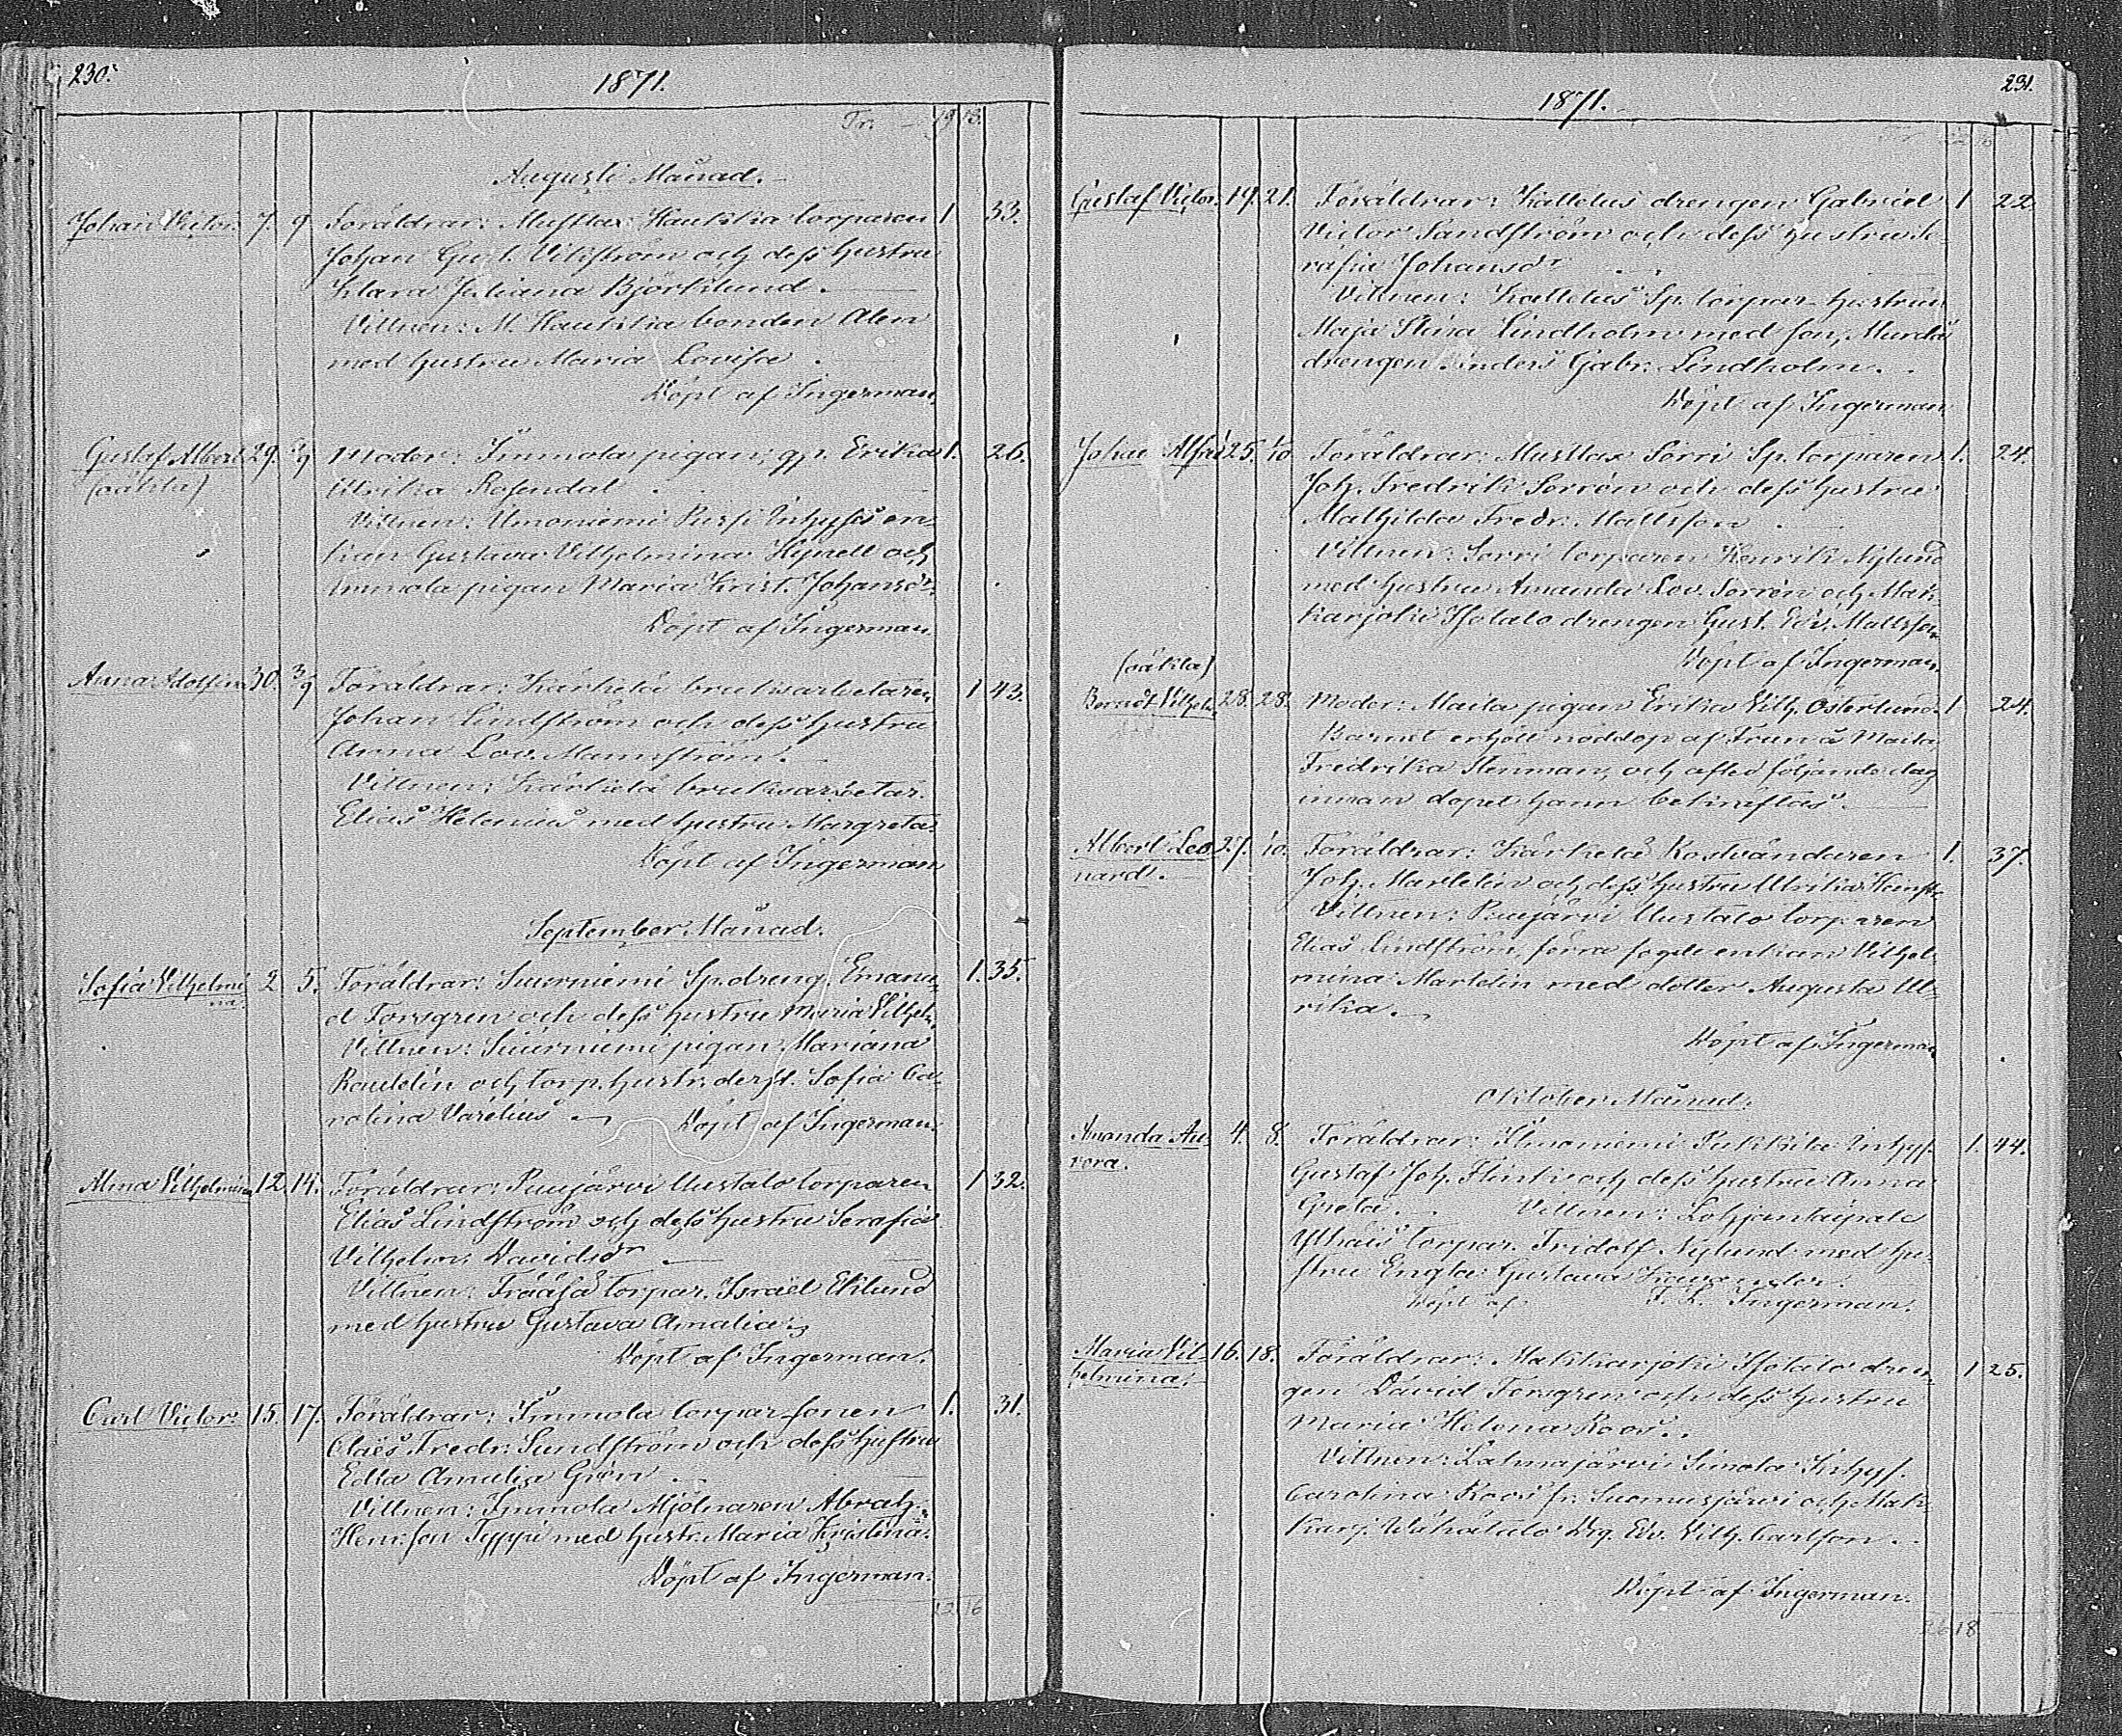 230.
1871.
Tr. — 19 13.
Augusti Månad.
Johan Victor. 7. 9 Föräldrar: Musttas Haukkia torparen 1 33.
Johan Gust. Vikström och dess hustru
Klara Juliana Björklund.
Vittnen: M. Haukkia bonden Alen
med hustru Maria Lovisa.
Döpt af Ingerman.
Gustaf Albert 29. 3/9 Moder: Immola pigan, qp. Erika 1. 26.
(oäkta) Ulrika Rosendal.
Vittnen: Ilmoniemi Pursi Inhyses en-
kan Gustava Vilhelmina Hynell och
Immola pigan Maria Krist. Johansdr.
Döpt af Ingerman.
Anna Adolfina 30. 3/9 Föräldrar: Kärkelä bruksarbetaren 1 43.
Johan Lindström och dess hustru
Anna Lov. Mannström.
Vittnen: Kärkelä bruksarbetar.
Elias Helenius med hustru Margreta.
Döpt af Ingerman
September Månad.
Sofia Vilhelmi 2 5. Föräldrar: Suurniemi Sp. dreng. Emanu- 1. 35.
na. el Forsgren och dess hustru Maria Vilhel.
Vittnen: Suurniemi pigan Mariana
Rautelin och torp. hustr. derst. Sofia Ca-
rolina Varelius Döpt af Ingerman.
Alma Vilhelmina 12. 14. Föräldrar: Puujärvi Uustalo torparen 1 32.
Elias Lindström och dess hustru Serafia
Vilhelm. Davidsdr
Vittnen: Frääsä torpar. Israel Eklund
med hustru Gustava Amalia.
Döpt af Ingerman.
Carl Victor. 15. 17. Föräldrar: Immola torparsonen 1. 31.
Claës Fredr. Sundström och dess hustru
Edla Amalia Grön.
Vittnen: Immola Mjölnaren Abrah.
Henr.son Typpi med hustr. Maria Kristina.
Döpt af Ingerman.
22 16
231.
1871.
Gustaf Victor. 19. 21. Föräldrar: Kattelus drengen Gabriel 1 22.
Victor Sandström och dess hustru Se-
rafia Johansdr
Vittnen: Kattelus Sp. torpar hustrun
Maja Stina Lindholm med son,
drengen Anders Gabr. Lindholm.
Döpt af Ingerman
Johan Alfrd 25. 1/10 Föräldrar: Musttas Sorri Sp. torparen 1. 24.
Joh. Fredrik Sorrön och dess hustru
Mathilda Fredr. Mattsson.
Vittnen: Sorri torparen Henrik Nylund
med hustru Amanda Lov. Sorrön och Mak-
karjoki Isotalo drengen Gust. Edv. Mattson
Döpt af Ingerman.
(oäkta)
Berndt Vilhelm 28. 28. Moder: Maila pigan Erika Vilh. Österlund. 1 24.
Barnet erhöll nöddop af Frun å Maila
Fredrika Stenman, och afled följande dag
innan dopet hann bekräftas.
Albert Leo 27. 1/10. Föräldrar: Kärkelä Rostvändaren 1. 37.
nard. Joh. Martelin och dess hustru Ulrika
Vittnen: Puujärvi Uustalo torparen
Elias Lindström, förra fogde enkan Vilhel-
mina Martelin med dotter Augusta Ul-
rika.
Döpt af Ingerman
Oktober Månad.
Amanda Au- 4. 8. Föräldrar: Ilmoniemi Pukkila Inhys. 1. 44.
rora. Gustaf Joh. Flink och dess hustru Anna
Greta. Vittnen: Lohjantaipale
Ylhäis torpar. Fridolf Nylund med hu-
stru Engla Gustava Kavander.
Döpt af F. L. Ingerman.
Maria Vil- 16. 18. Föräldrar: Makkarjoki Isotalo dren- 1 25.
helmina. gen David Forsgren och dess hustru
Maria Helena Roos.
Vittnen: Lahnajärvi Simola Inhys.
Carolina Roos fr. Suomusjärvi och Mak-
karj. Vähätalo Drg. Edv. Vilh. Carlson.
Döpt af Ingerman.
26 18